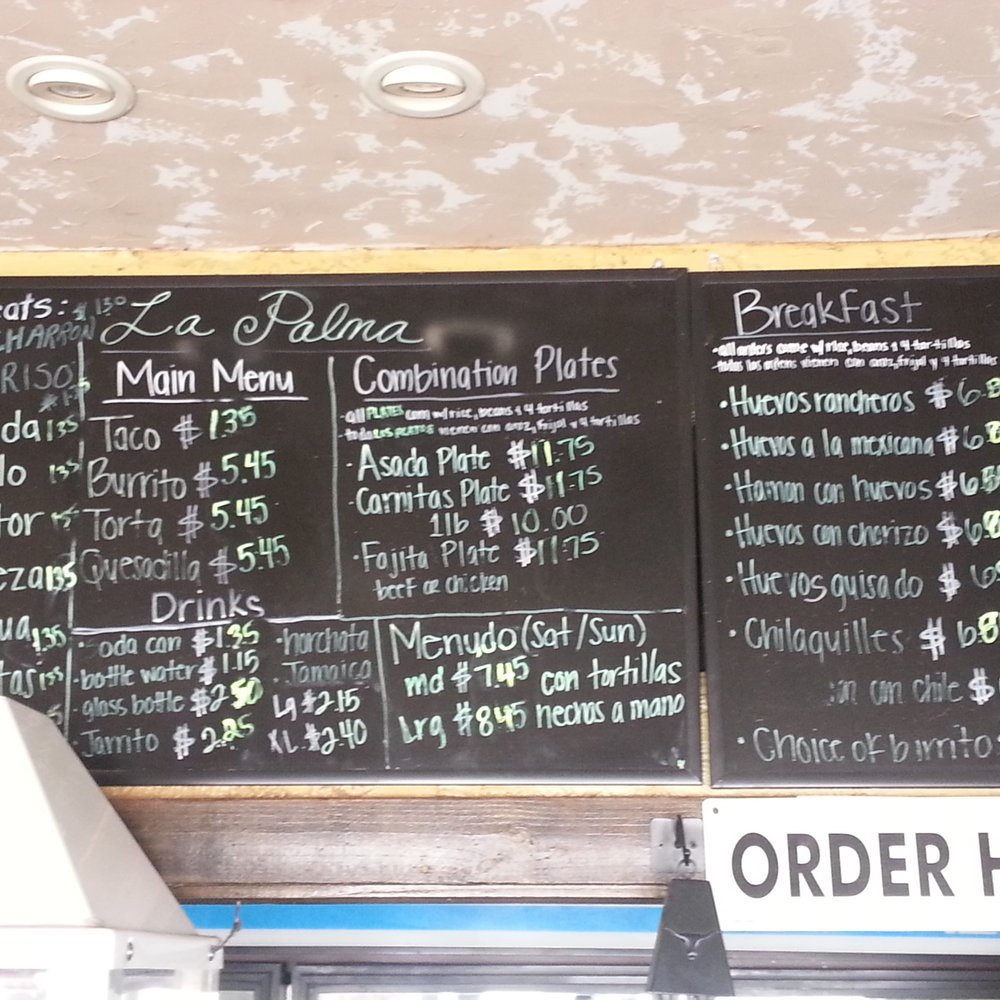 eats: $1.30
CHARRON
RISO
da 1.35
lo 1.35
tor
eza 1.35
ua 1.35
tas 1.35
La Palma
Main Menu
Taco $1.35
Burrito $5.45
Torta $5.45
Quesadilla $5.45
Drinks
soda can $1.35
·bottle water $1.15
·glass bottle $2.50
·Jarrito $2.25
·horchata
·Jamaica
Lg $2.15
XL. $2.40
Combination Plates
·all PLATES com w/rice, beans & 4 tortillas
·todo LOS PLATES vienen con arroz, frijol y 4 tortillas
·Asada Plate $11.75
·Carnitas Plate $11.75
1lb $10.00
·Fajita Plate $11.75
beef or chicken
Menudo (Sat/Sun)
md $7.45 con tortillas
Lrg $8.45 hechas a mano
Breakfast
·all orders come w/rice, beans & 4 tortillas
·todas las ordenes vienen con arroz, frijol y 4 tortillas
·Huevos rancheros $6.
·Huevos a la mexicana $6.
·Hamon con huevos $6.5
·Huevos con chorizo $6.
·Huevos guisado $6
·Chilaquilles $6.
con chile $
·Choice of burrito
ORDER H